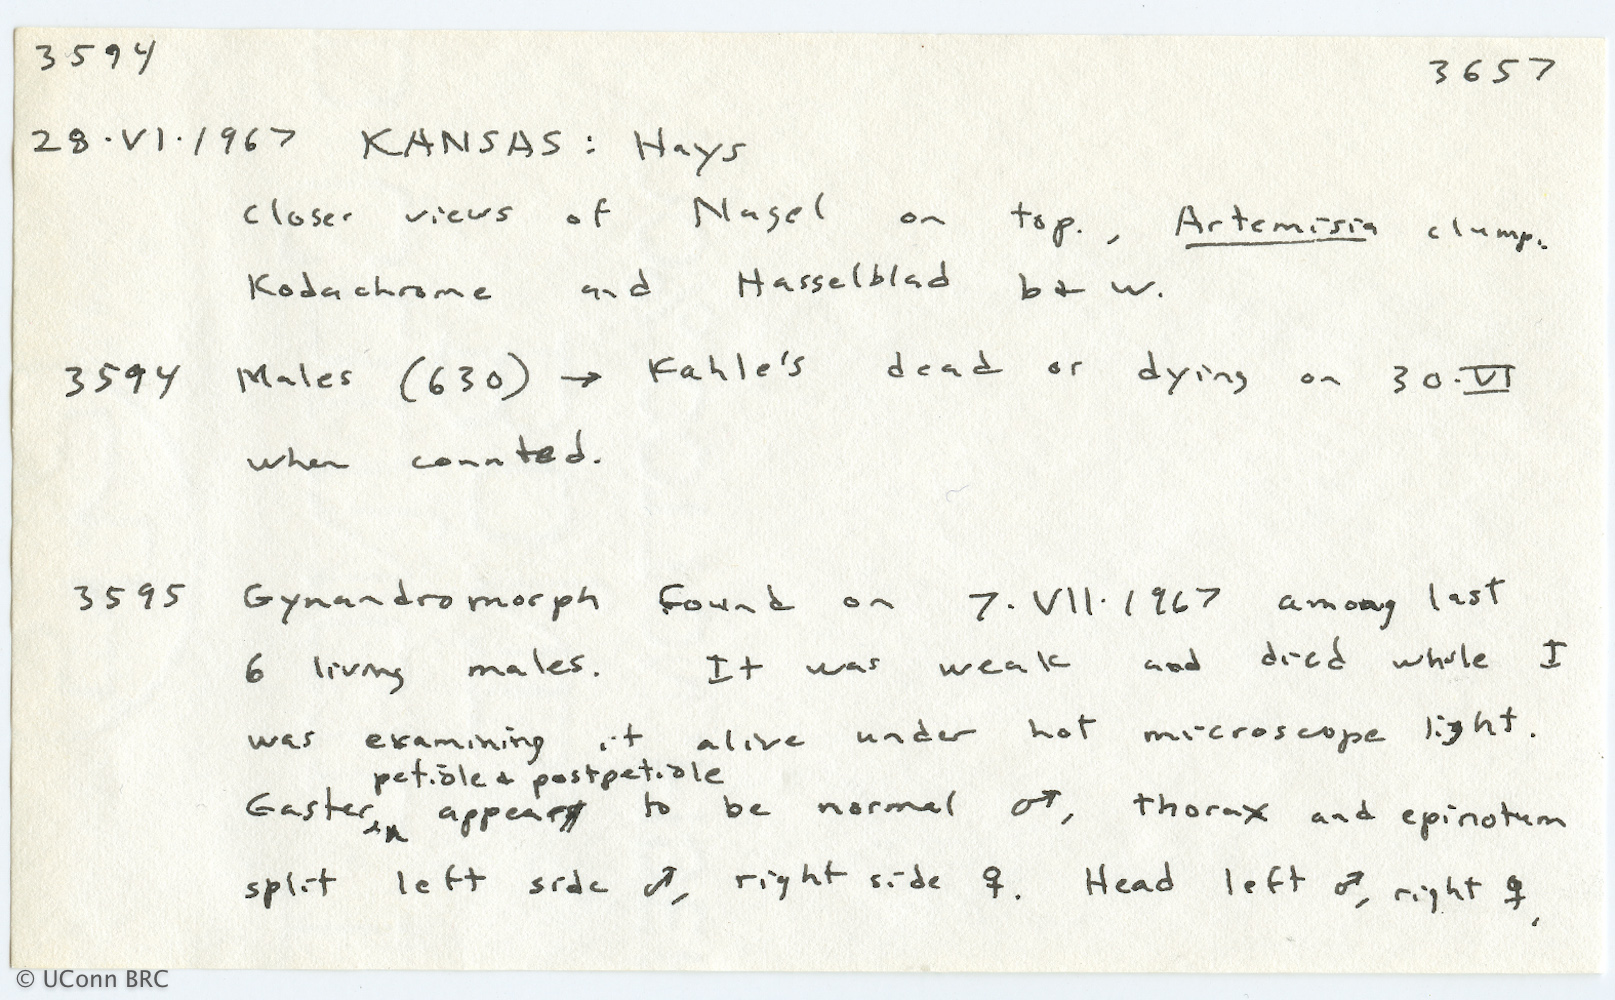 3594 3657
28·VI·1967 KANSAS: Hays
closer views of Nagel on top., Artemisia clump.
Kodachrome and Hasselblad b & w.
3594 Males (630) → Kahle's dead or dying on 30·VI
when counted.
3595 Gynandromorph found on 7·VII·1967 among last
6 living males. It was weak and died while I
was examining it alive under hot microscope light.
petiole & postpetiole
Gaster, appear to be normal ♂, thorax and epinotum
split left side ♂, right side ♀. Head left ♂, right ♀,
© UConn BRC